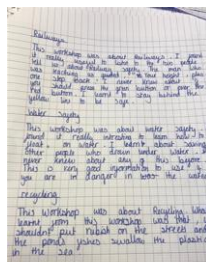 Railways
This workshop was about Railways. I found
it really
tell us about Railway safety. The man
was teaching us
step back. I never knew about
should press the green button or even the
Red button. I learnt to stay behind the
yellow line to be safe.
Water safety
This workshop was about water safety. I
found it really interesting to learn how to
float on water. I learnt about saving
other people who under water. I
never knew about any of this before.
This is very good information to use if
you are in danger in was the water.
recycling
This workshop was about Recycling. What
learnt from this workshop was that
shouldn't put rubish on the streets and
the ponds fishes swallow the plastic
in the sea.